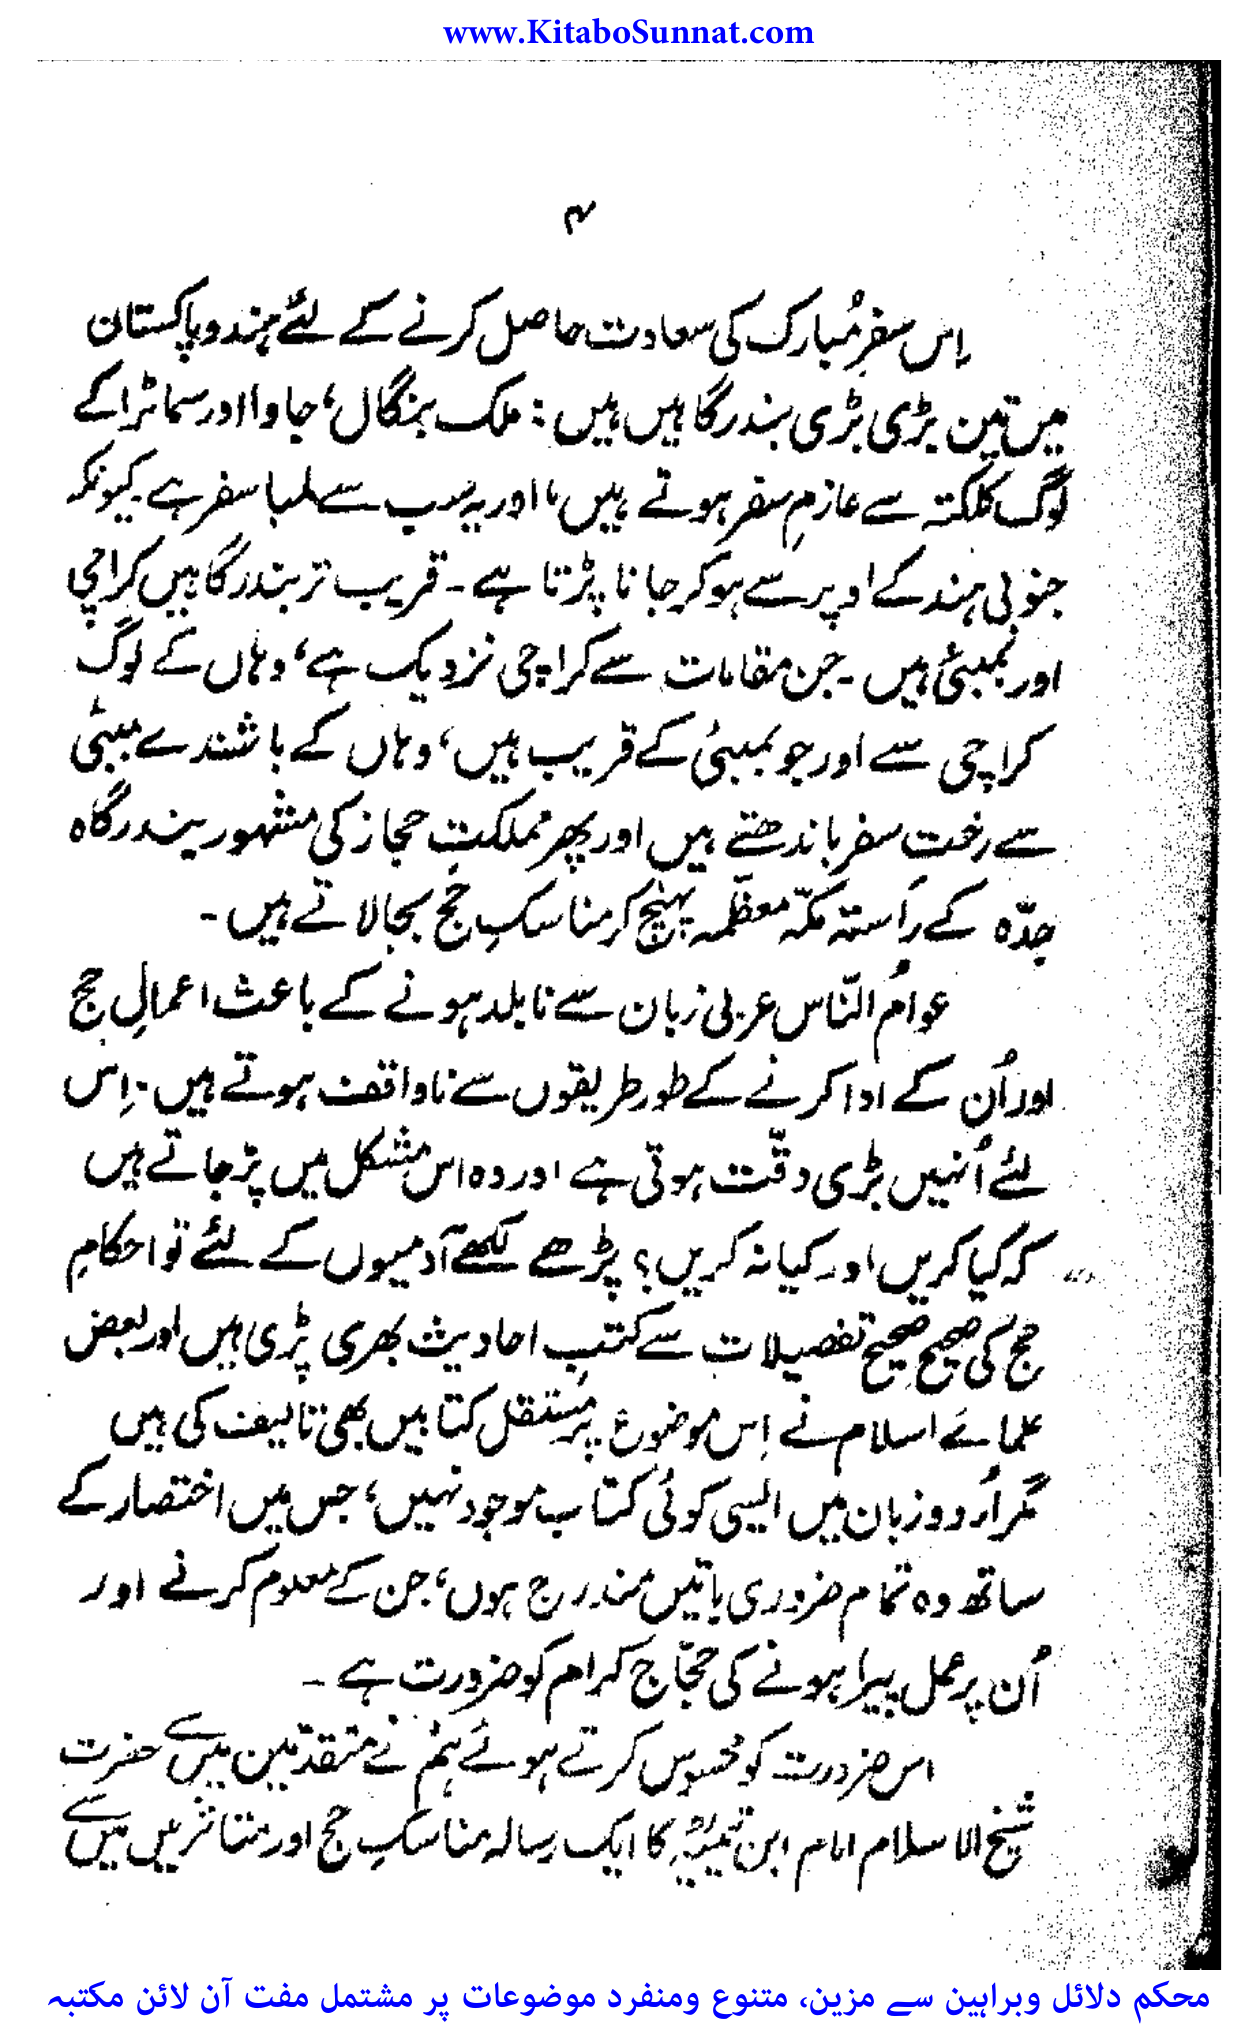 www.KitaboSunnat.com
۴
اِس سفرِ مُبارک کی سعادت حاصل کرنے کے لئے ہندوپاکستان
میں تین بڑی بڑی بندرگاہیں ہیں : ملک بنگال، جاوا اور سماٹرا کے
لوگ کلکتہ سے عازمِ سفر ہوتے ہیں، اور یہ سب سے لمبا سفر ہے۔ کیونکہ
جنوبی ہند کے اوپر سے ہو کر جانا پڑتا ہے ۔ قریب تر بندرگاہیں کراچی
اور بمبئی ہیں ۔ جن مقامات سے کراچی نزدیک ہے، وہاں کے لوگ
کراچی سے اور جو بمبئی کے قریب ہیں، وہاں کے باشندے بمبئی
سے رختِ سفر باندھتے ہیں اور پھر مملکتِ حجاز کی مشہور بندرگاہ
جدّہ کے راستہ مکّہ معظّمہ پہنچ کر مناسکِ حج بجا لاتے ہیں ۔
عوامُ النّاس عربی زبان سے نابلد ہونے کے باعث اعمالِ حج
اور اُن کے ادا کرنے کے طور طریقوں سے ناواقف ہوتے ہیں ۔ اِس
لئے اُنہیں بڑی دقّت ہوتی ہے اور وہ اس مشکل میں پڑ جاتے ہیں
کہ کیا کریں اور کیا نہ کریں؟ پڑھے لکھے آدمیوں کے لئے تو احکامِ
حج کی صحیح صحیح تفصیلات سے کتبِ احادیث بھری پڑی ہیں اور بعض
علمائے اسلام نے اِس موضوع پر مستقل کتابیں بھی تالیف کی ہیں
مگر اُردو زبان میں ایسی کوئی کتاب موجود نہیں، جس میں اختصار کے
ساتھ وہ تمام ضروری باتیں مندرج ہوں، جن کے معلوم کرنے اور
اُن پر عمل پیرا ہونے کی حجّاج کرام کو ضرورت ہے ۔
اس ضرورت کو محسوس کرتے ہوئے ہم نے متقدّمین میں سے حضرت
شیخ الاسلام امام ابن تیمیہؒ کا ایک رسالہ مناسکِ حج اور متاثریں میں سے
محکم دلائل وبراہین سے مزین، متنوع ومنفرد موضوعات پر مشتمل مفت آن لائن مکتبہ